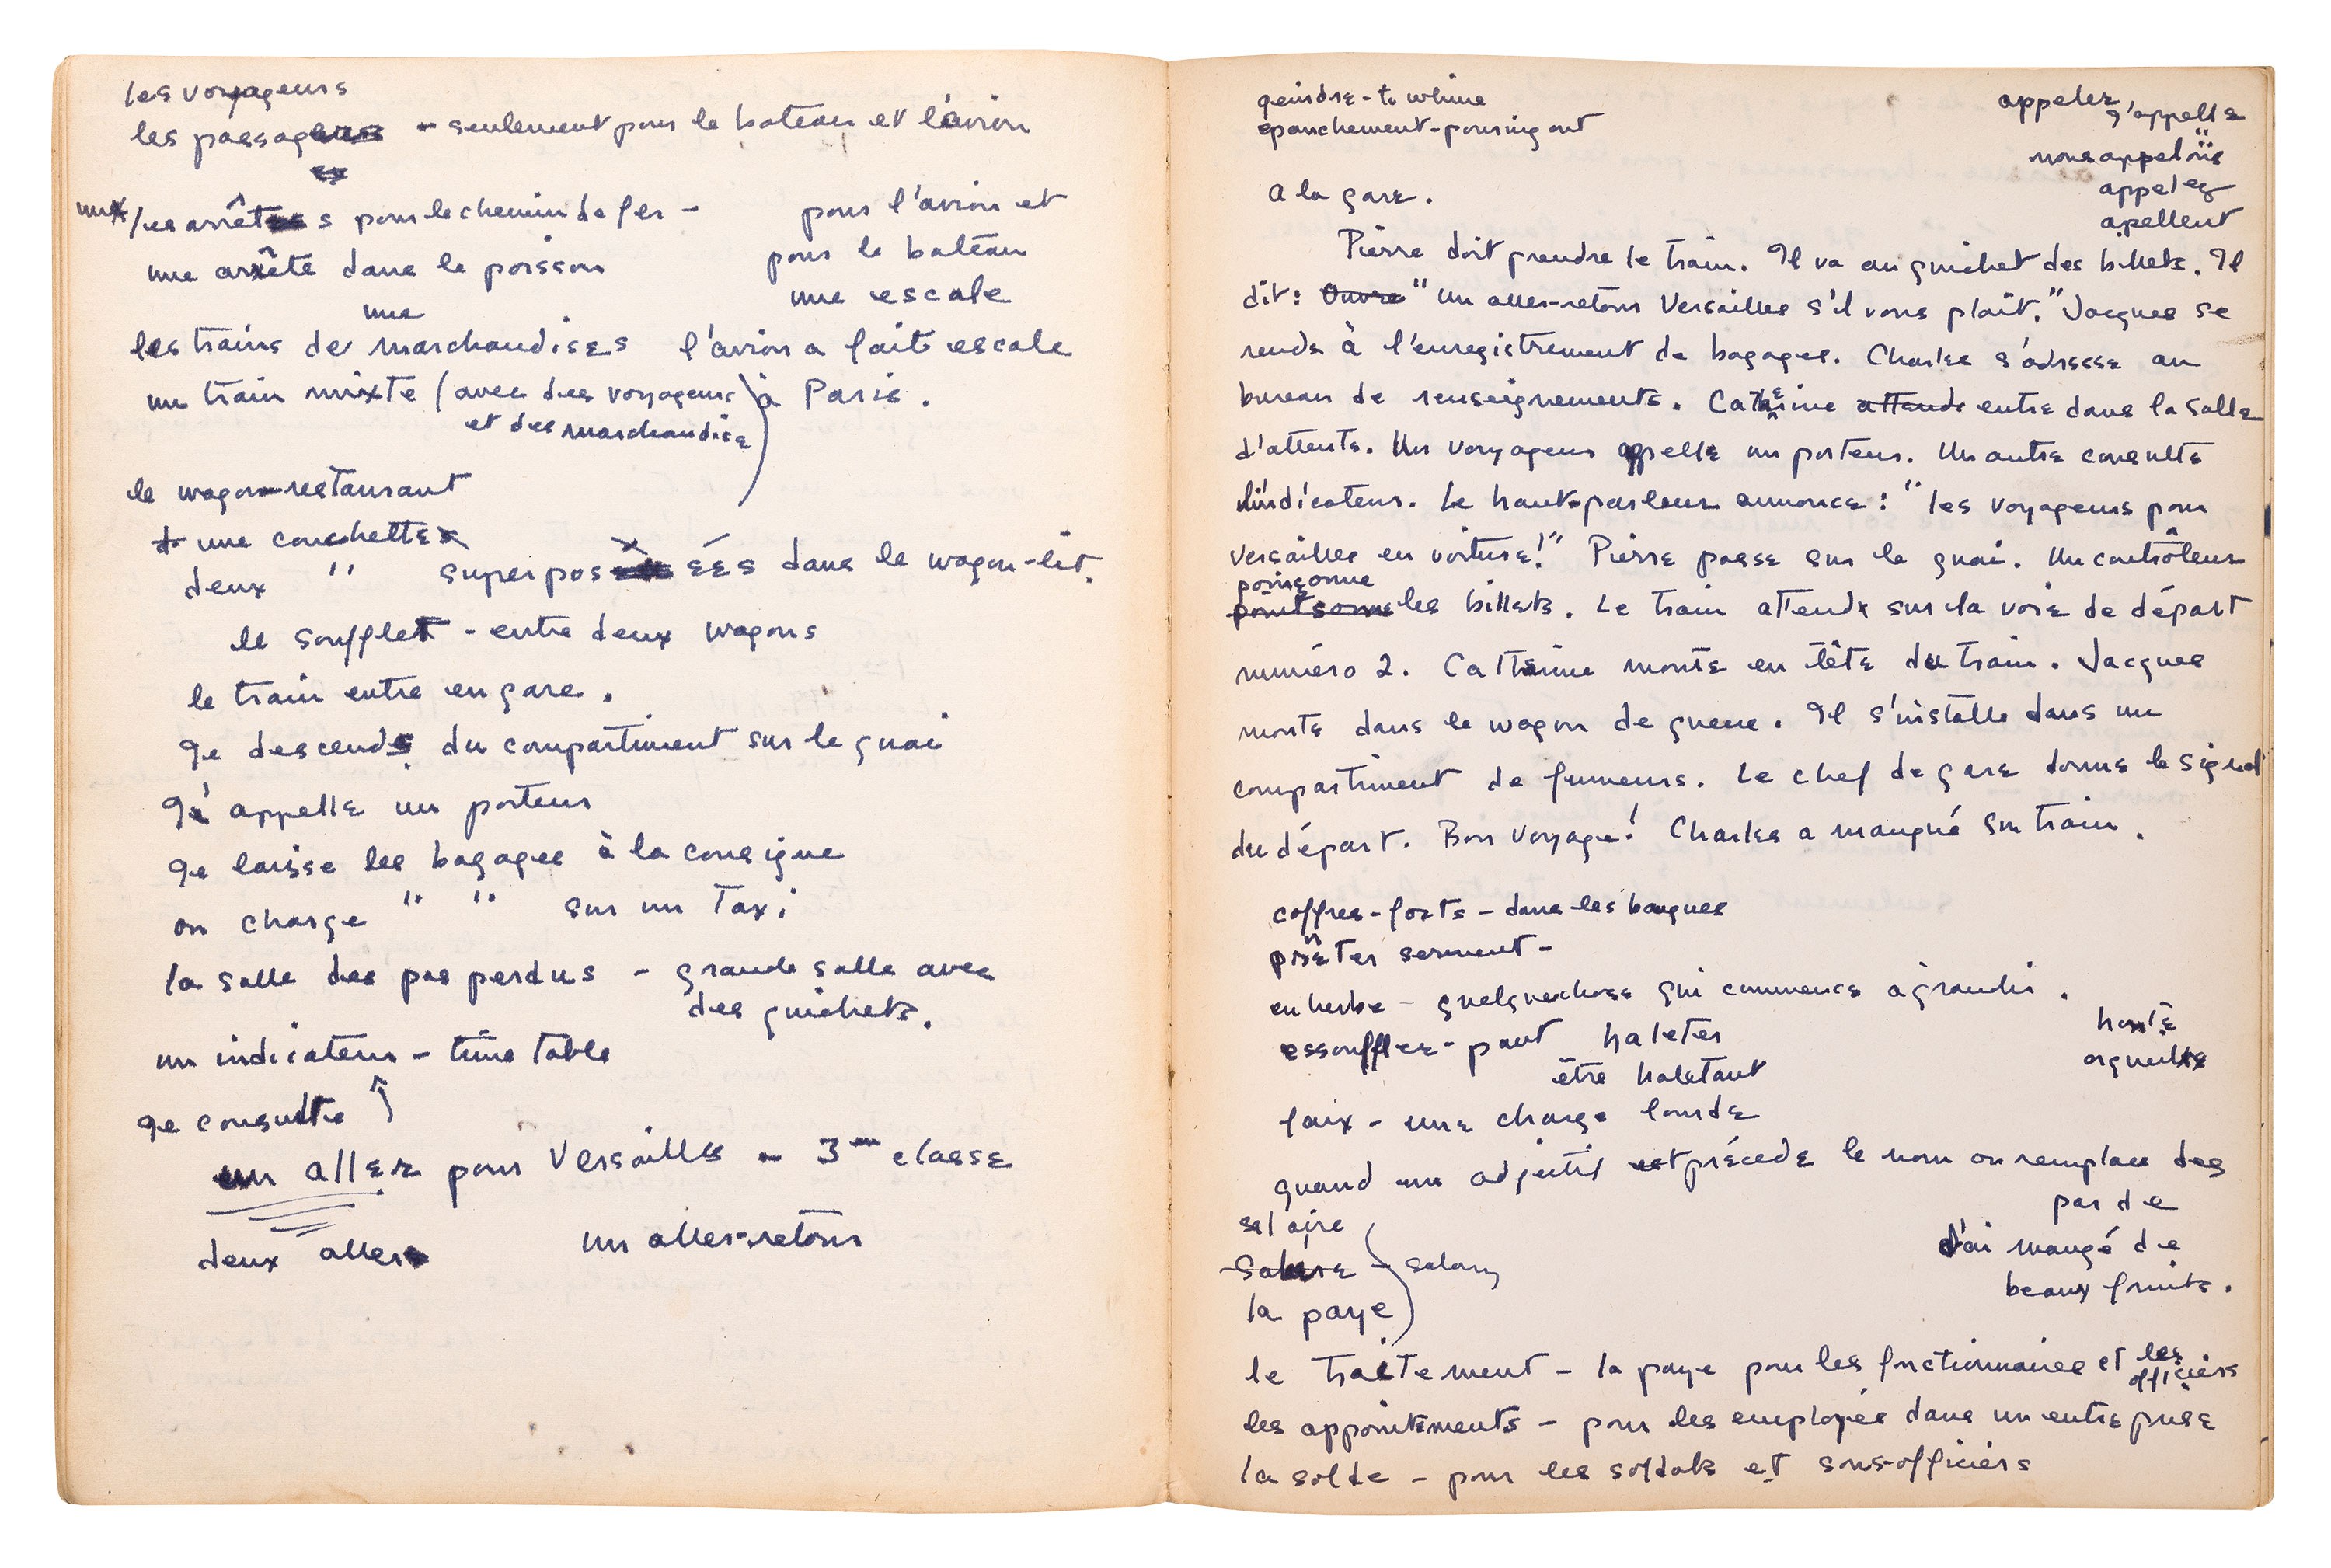 les voyageurs
les passagers - seulement pour le bateau et l'avion
les arrêts pour le chemin de fer -
une arrête dans le poisson
pour l'avion et
pour le bateau
une escale
une
les trains de marchandises
un train mixte (avec des voyageurs
et des marchandise)
l'avion a fait escale
à Paris.
le wagon-restaurant
une couchette
deux " superposées dans le wagon-lit.
le soufflet - entre deux wagons
le train entre en gare.
Je descends du compartiment sur le quai
J'appelle un porteur
Je laisse les bagages à la consigne
on charge " " sur un Taxi
la salle des pas perdus - grande salle avec
des guichets.
un indicateur - time table
Je consulte ↑
un aller pour Versailles - 3me classe
deux allers
un aller-retour
geindre - to whine
epanchement - pouring out
appeler
j'appelle
nous appelons
appelez
apellent
A la gare.
Pierre doit prendre le train. Il va au guichet des billets. Il
dit: Ouvre "un aller-retour Versailles s'il vous plaît." Jacques se
rends à l'enregistrement de bagages. Charles s'adresse au
bureau de renseignements. Catherine attends entre dans la salle
d'attente. Un voyageur appelle un porteur. Un autre consulte
l'indicateur. Le haut-parleur annonce: "les voyageurs pour
Versailles en voiture!" Pierre passe sur le quai. Un contrôleur
poinçonne
pointsonne les billets. Le train attend sur la voie de départ
numéro 2. Catherine monte en tête du train. Jacques
monte dans le wagon de queue. Il s'installe dans un
compartiment de fumeurs. Le chef de gare donne le signal
du départ. Bon voyage! Charles a manqué son train.
coffres-forts - dans les banques
prêter serment -
en herbe - quelquechose qui commence à grandir.
essouffler - pant haleter
être haletant
honte
orgueil
faix - une charge lourde
quand un adjectif précède le nom on remplace des
par de
J'ai mangé de
beaux fruits.
salaire
salaire - salary
la paye
le traitement - la paye pour les fonctionnaires et les
officiers
les appointements - pour les employés dans un entreprise
la solde - pour les soldats et sous-officiers